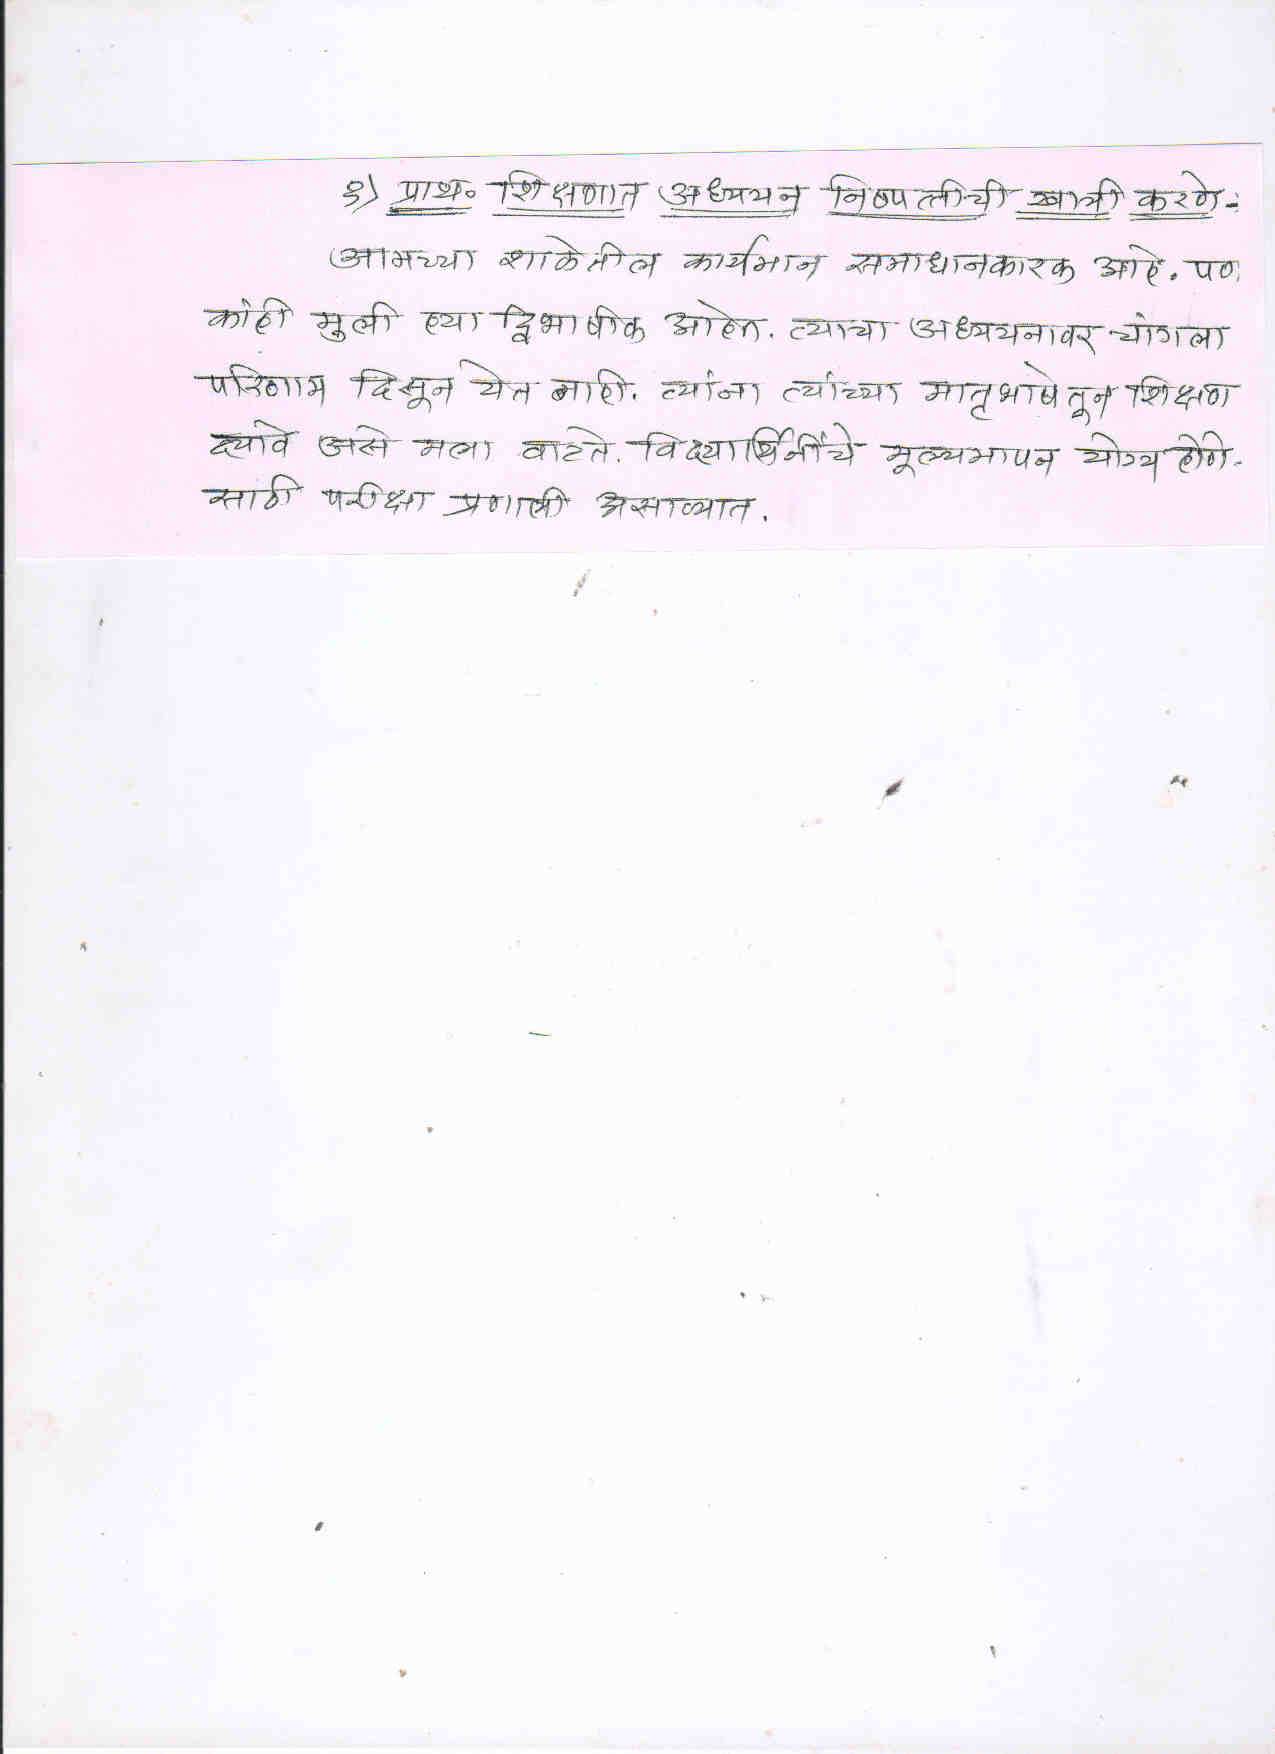 १) प्राथ. शिक्षणात अध्ययन निष्पत्तीची खात्री करणे -:
आमच्या शाळेतील कार्यमान समाधानकारक आहे. पण
कांही मुली ह्या द्विभाषीक आहेत. त्याचा अध्ययनावर चांगला
परिणाम दिसून येत नाही. त्यांना त्यांच्या मातृभाषेतून शिक्षण
द्यावे असे मला वाटते. विद्यार्थिनींचे मूल्यमापन योग्य होणे-
साठी परीक्षा प्रणाली असाव्यात.